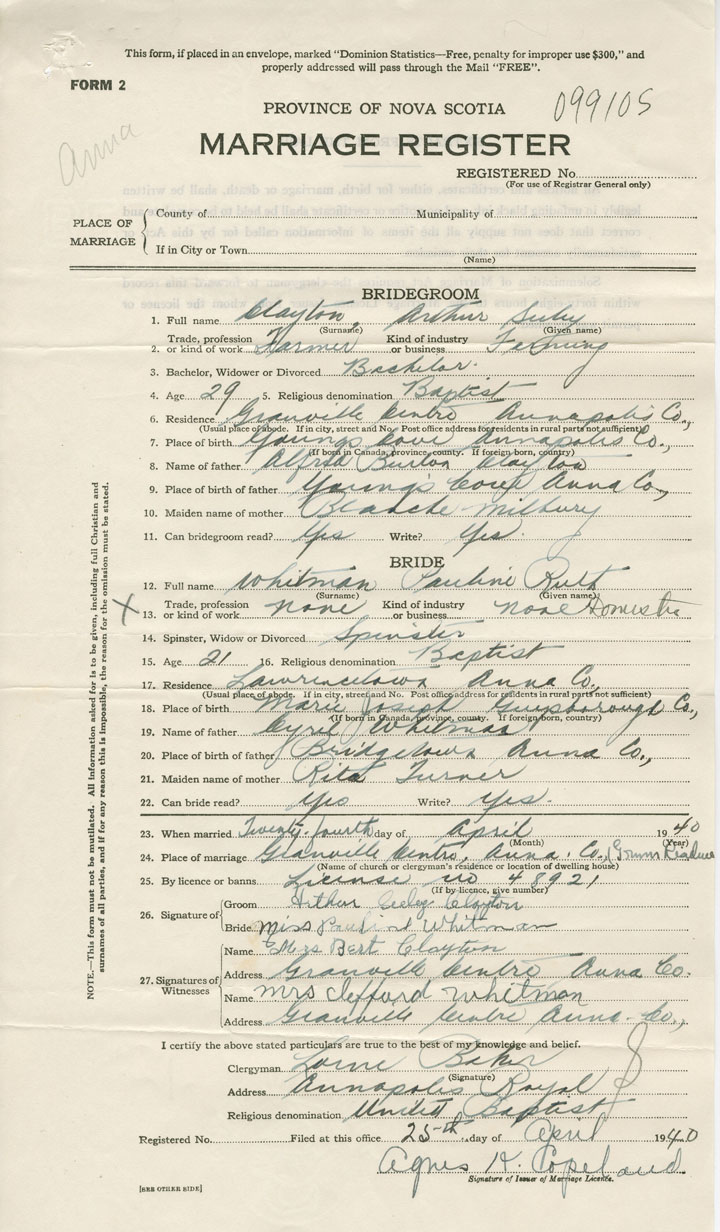 This form, if placed in an envelope, marked "Dominion Statistics—Free, penalty for improper use $300," and
properly addressed will pass through the Mail "FREE".
FORM 2
PROVINCE OF NOVA SCOTIA
099105
Anna
MARRIAGE REGISTER
REGISTERED No.
(For use of Registrar General only)
PLACE OF MARRIAGE
County of Municipality of
If in City or Town
(Name)
BRIDEGROOM
1. Full name Clayton, Arthur Seeley
(Surname) (Given name)
2. Trade, profession or kind of work Farmer Kind of industry or business Farming
3. Bachelor, Widower or Divorced Bachelor.
4. Age 29 5. Religious denomination Baptist
6. Residence Granville Centre Annapolis Co.,
(Usual place of abode. If in city, street and No. Post office address for residents in rural parts not sufficient)
7. Place of birth Youngs Cove Annapolis Co.,
(If born in Canada, province, county. If foreign born, country)
8. Name of father Alfred Burton Clayton
9. Place of birth of father Young's Cove Anna Co.,
10. Maiden name of mother Blanche Milbury
11. Can bridegroom read? Yes Write? Yes.
BRIDE
12. Full name Whitman Pauline Ruth
(Surname) (Given name)
X
13. Trade, profession or kind of work None Kind of industry or business None Domestic
14. Spinster, Widow or Divorced Spinster
15. Age 21 16. Religious denomination Baptist
17. Residence Lawrencetown Anna Co.,
(Usual place of abode. If in city, street and No. Post office address for residents in rural parts not sufficient)
18. Place of birth Marie Joseph Guysborough Co.,
(If born in Canada, province, county. If foreign born, country)
19. Name of father Cyril Whitman
20. Place of birth of father Bridgetown Anna Co.,
21. Maiden name of mother Rita Turner
22. Can bride read? Yes Write? Yes.
23. When married Twenty-fourth day of April 1940
(Month) (Year)
24. Place of marriage Granville Centre, Anna. Co.,
(Name of church or clergyman's residence or location of dwelling house)
25. By licence or banns License no 48921
(If by licence, give number)
26. Signature of
Groom Arthur Seeley Clayton
Bride Miss Pauline Whitman
27. Signatures of Witnesses
Name Mrs Bert Clayton
Address Granville Centre Anna Co.
Name Mrs Clifford Whitman
Address Granville Centre Anna-Co.,
I certify the above stated particulars are true to the best of my knowledge and belief.
Clergyman Lorne Baker
(Signature)
Address Annapolis Royal
Religious denomination United Baptist
Registered No. Filed at this office 25th day of April 1940
Agnes H. Copeland
Signature of Issuer of Marriage Licence.
[SEE OTHER SIDE]
NOTE.—This form must not be mutilated. All information asked for is to be given, including full Christian and
surnames of all parties, and if for any reason this is impossible, the reason for the omission must be stated.